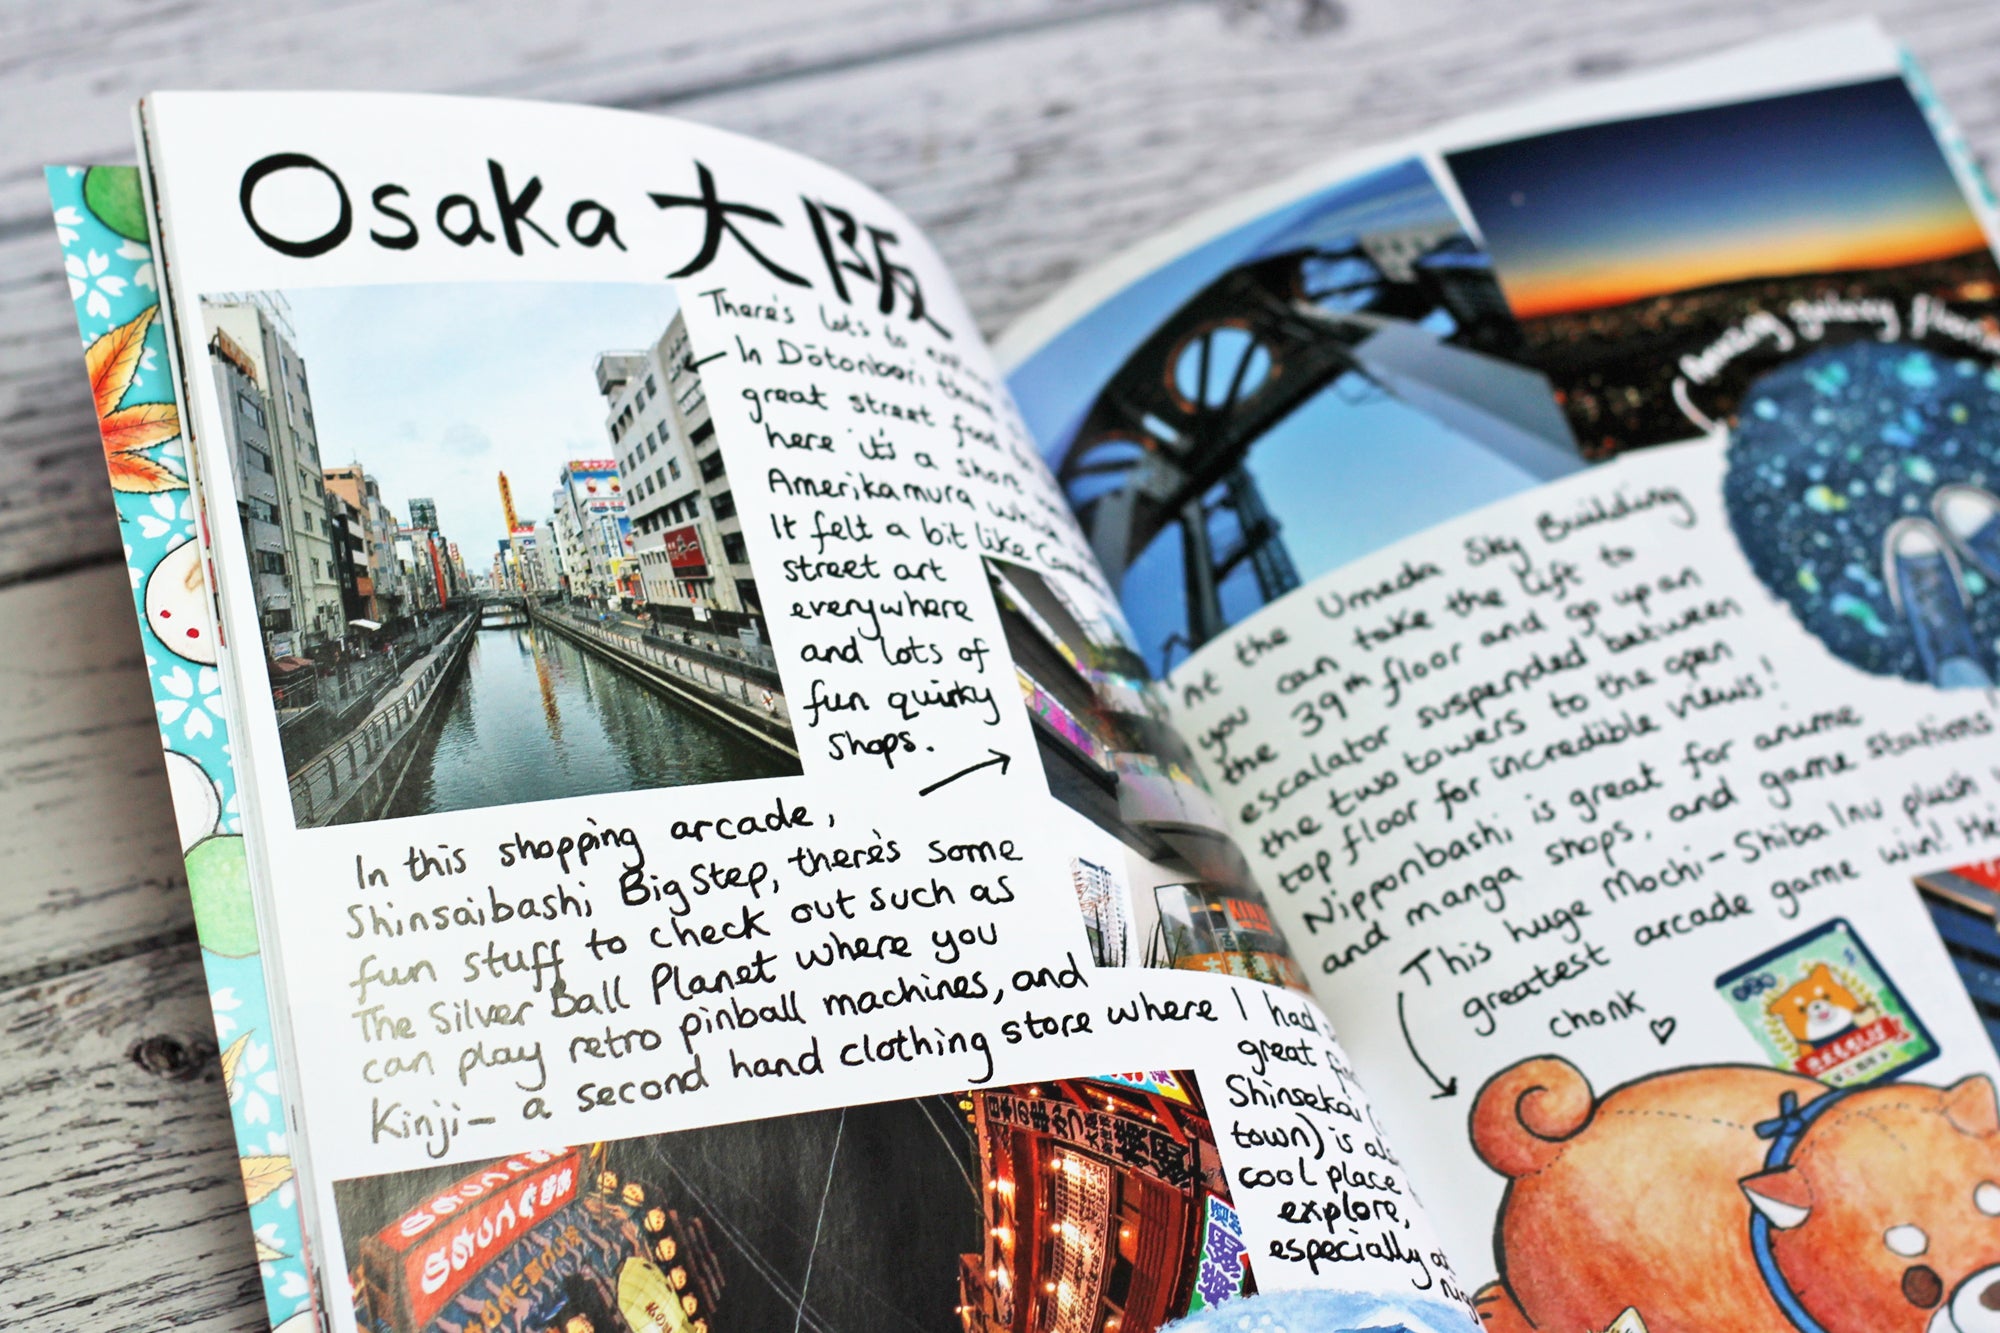 Osaka 大阪
There's lots to
In Dōtonbori
great street food
here it's a short
Amerikamura
It felt a bit like
street art
everywhere
and lots of
fun quirky
shops.
In this shopping arcade,
Shinsaibashi BigStep, there's some
fun stuff to check out such as
The Silver Ball Planet where you
can play retro pinball machines, and
Kinji - a second hand clothing store where I had
great
Shinsekai
town) is
cool place
explore,
especially
Amazing galaxy
At the Umeda Sky Building
you can take the lift to
the 39th floor and go up an
escalator suspended between
the two towers to the open
top floor for incredible views!
Nipponbashi is great for anime
and manga shops, and game stations!
This huge Mochi-Shiba Inu plush
greatest arcade game win!
chonk